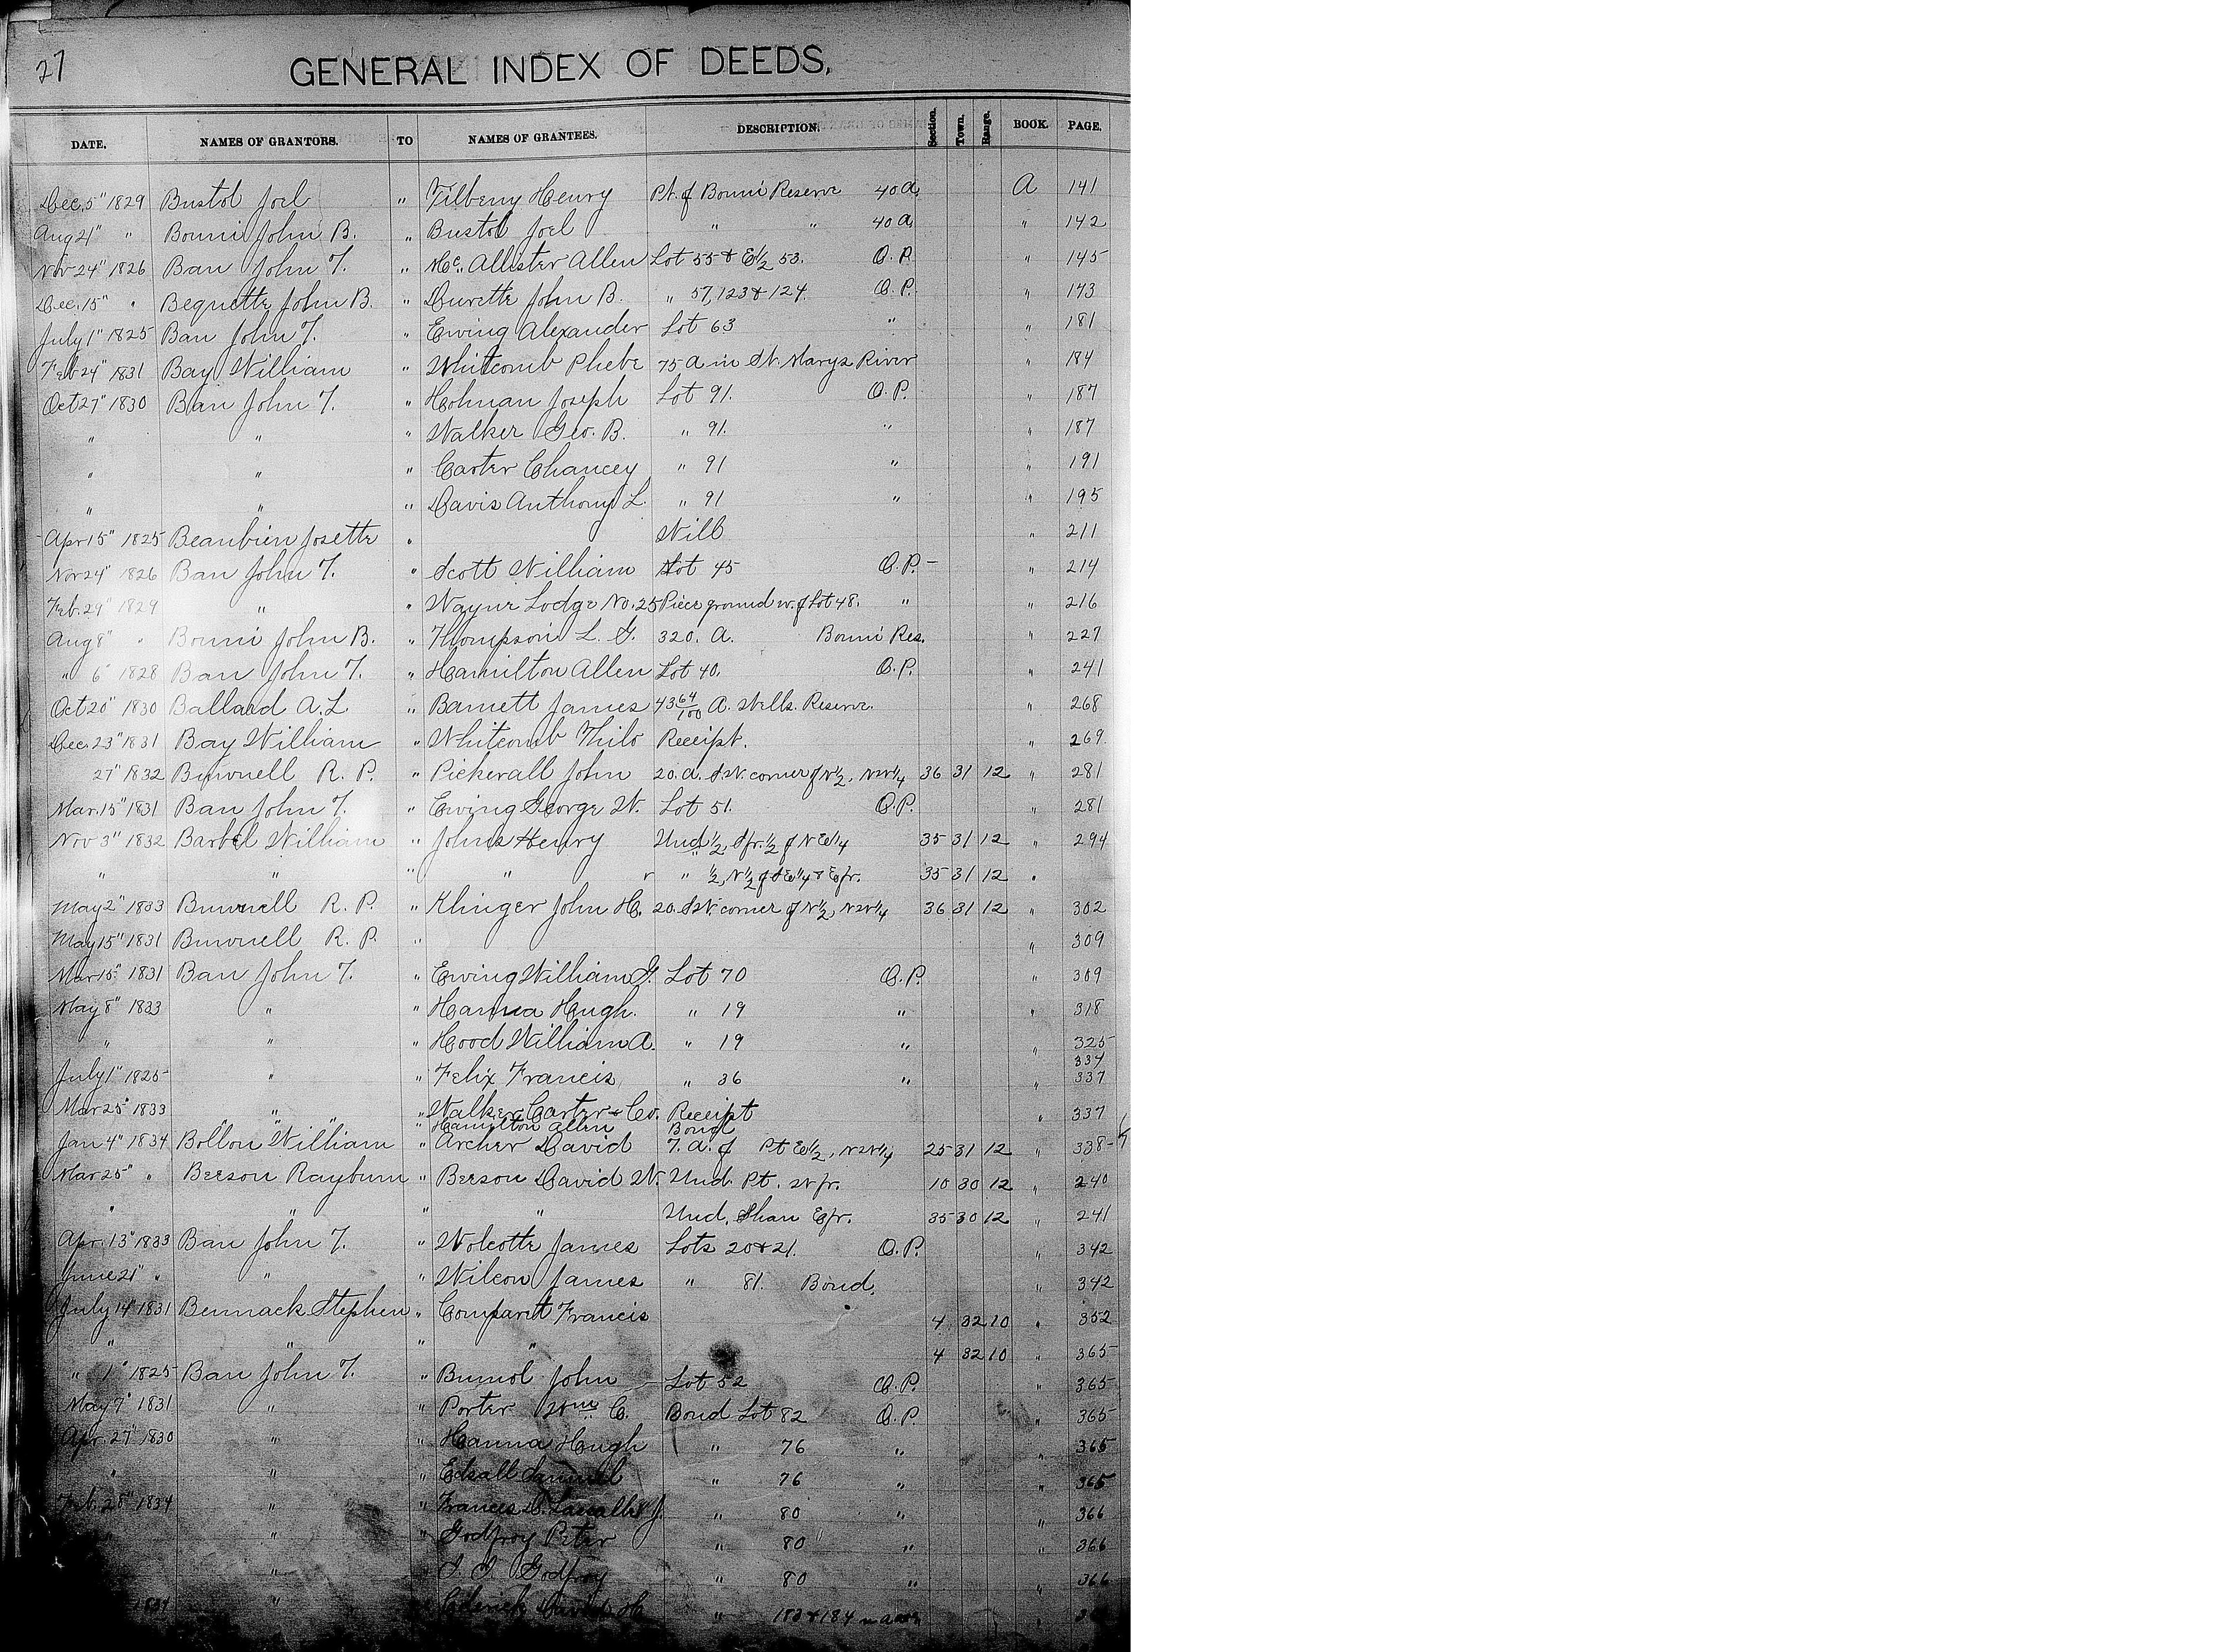 27
GENERAL INDEX OF DEEDS.
DATE. NAMES OF GRANTORS. TO NAMES OF GRANTEES. DESCRIPTION. Section. Town. Range. BOOK. PAGE.
Dec. 5" 1829 Bustol Joel " Tilberry Henry Pt. of Bonni Reserve 40 A. A 141
Aug 21" " Bonni John B. " Bustol Joel " " 40 A. " 142
Nov 24" 1826 Barr John T. " Mc. Allister Allen Lot 55 & E 1/2 53. O. P. " 145
Dec. 15" " Bequette John B. " Durette John B. " 57, 123 & 124. O. P. " 143
July 1" 1825 Barr John T. " Ewing Alexander Lot 63 " " 181
Feb 24" 1831 Bay William " Whitcomb Phebe 75 A in St. Marys River " 184
Oct 27" 1830 Barr John T. " Holman Joseph Lot 91. O. P. " 187
" " " Walker Geo. B. " 91. " " 187
" " " Carter Chancey " 91 " " 191
" " " Davis Anthony L. " 91 " " 195
Apr 15" 1825 Beaubien Josette " Will " 211
Nov 24" 1826 Barr John T. " Scott William Lot 45 O. P. - " 214
Feb. 29" 1829 " " Wayne Lodge No. 25 Piece ground w. of Lot 48. " " 216
Aug 8" " Bonni John B. " Thompson L. G. 320. A. Bonni Res. " 227
" 6" 1828 Barr John T. " Hamilton Allen Lot 40. O. P. " 241
Oct 20" 1830 Ballard A. L. " Barnett James 43 64/100 A. Wells. Reserve. " 268
Dec. 23" 1831 Bay William " Whitcomb Thilo Receipt. " 269
27" 1832 Burnell R. P. " Pickerall John 20. A. SW. corner of N 1/2, NW 1/4 36 31 12 " 281
Mar. 15" 1831 Barr John T. " Ewing George W. Lot 51. O. P. " 281
Nov 3" 1832 Barbel William " Johns Henry Und 1/2, S fr. 1/2 of N E 1/4 35 31 12 " 294
" " " " " 1/2, N 1/2 of S E 1/4 & E fr. 35 31 12 "
May 2" 1833 Burnell R. P. " Klinger John H. 20. SW. corner of N 1/2, NW 1/4 36 31 12 " 302
May 15" 1831 Burnell R. P. " " 309
Mar 15" 1831 Barr John T. " Ewing William G. Lot 70 O. P. " 309
May 8" 1833 " " Hanna Hugh. " 19 " " 318
" " " Hood William A. " 19 " " 325
337
July 1" 1825 " " Felix Francis " 36 " " 337
Mar 25" 1833 " " Walker Carter & Co. Receipt " 337
" " " Hamilton Allen Bond
Jan 4" 1834 Bollon William " Archer David 7. A. of Pt E 1/2, NW 1/4 25 31 12 " 338
Mar 25" " Berson Rayburn " Berson David W. Und. Pt. W fr. 10 30 12 " 240
" " " " Und. Share E fr. 35 30 12 " 241
Apr. 13" 1833 Barr John T. " Wolcotte James Lots 20 & 21. O. P. " 342
June 21" " " " Wilcon James " 81. Bond. " 342
July 14" 1831 Bennack Stephen " Comparet Francis 4 32 10 " 352
" " " " 4 32 10 " 365
" 1" 1825 Barr John T. " Bunol John Lot 52 O. P. " 365
May 7" 1831 " " Porter Wm C. Bond Lot 82 O. P. " 365
Apr. 27" 1830 " " Hanna Hugh " 76 " " 365
" " " Edsall Samuel " 76 " " 365
Feb. 28" 1834 " " Frances D. Lasalle J. " 80 " " 366
" " Godfroy Peter " 80 " " 366
" J. J. Godfroy " 80 " " 366
1834 " David H. " 183 & 184 "